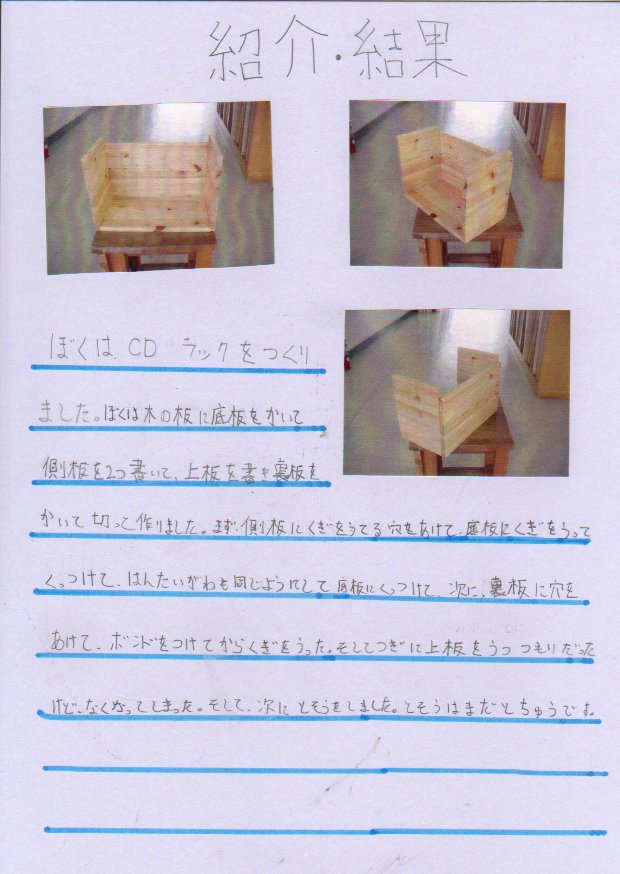 紹介・結果
ぼくは CD ラックをつくり
ました。ぼくは木の板に底板をかいて
側板を2つ書いて、上板を書き裏板を
かいて切って作りました。まず、側板にくぎをうてる穴をあけて、底板にくぎをうって
くっつけて、はんたいがわも同じようにして底板にくっつけて、次に、裏板に穴を
あけて、ボンドをつけてからくぎをうった。そしてつぎに上板をうつつもりだった
けど、なくなってしまった。そして、次にとそうをしました。とそうはまだとちゅうです。